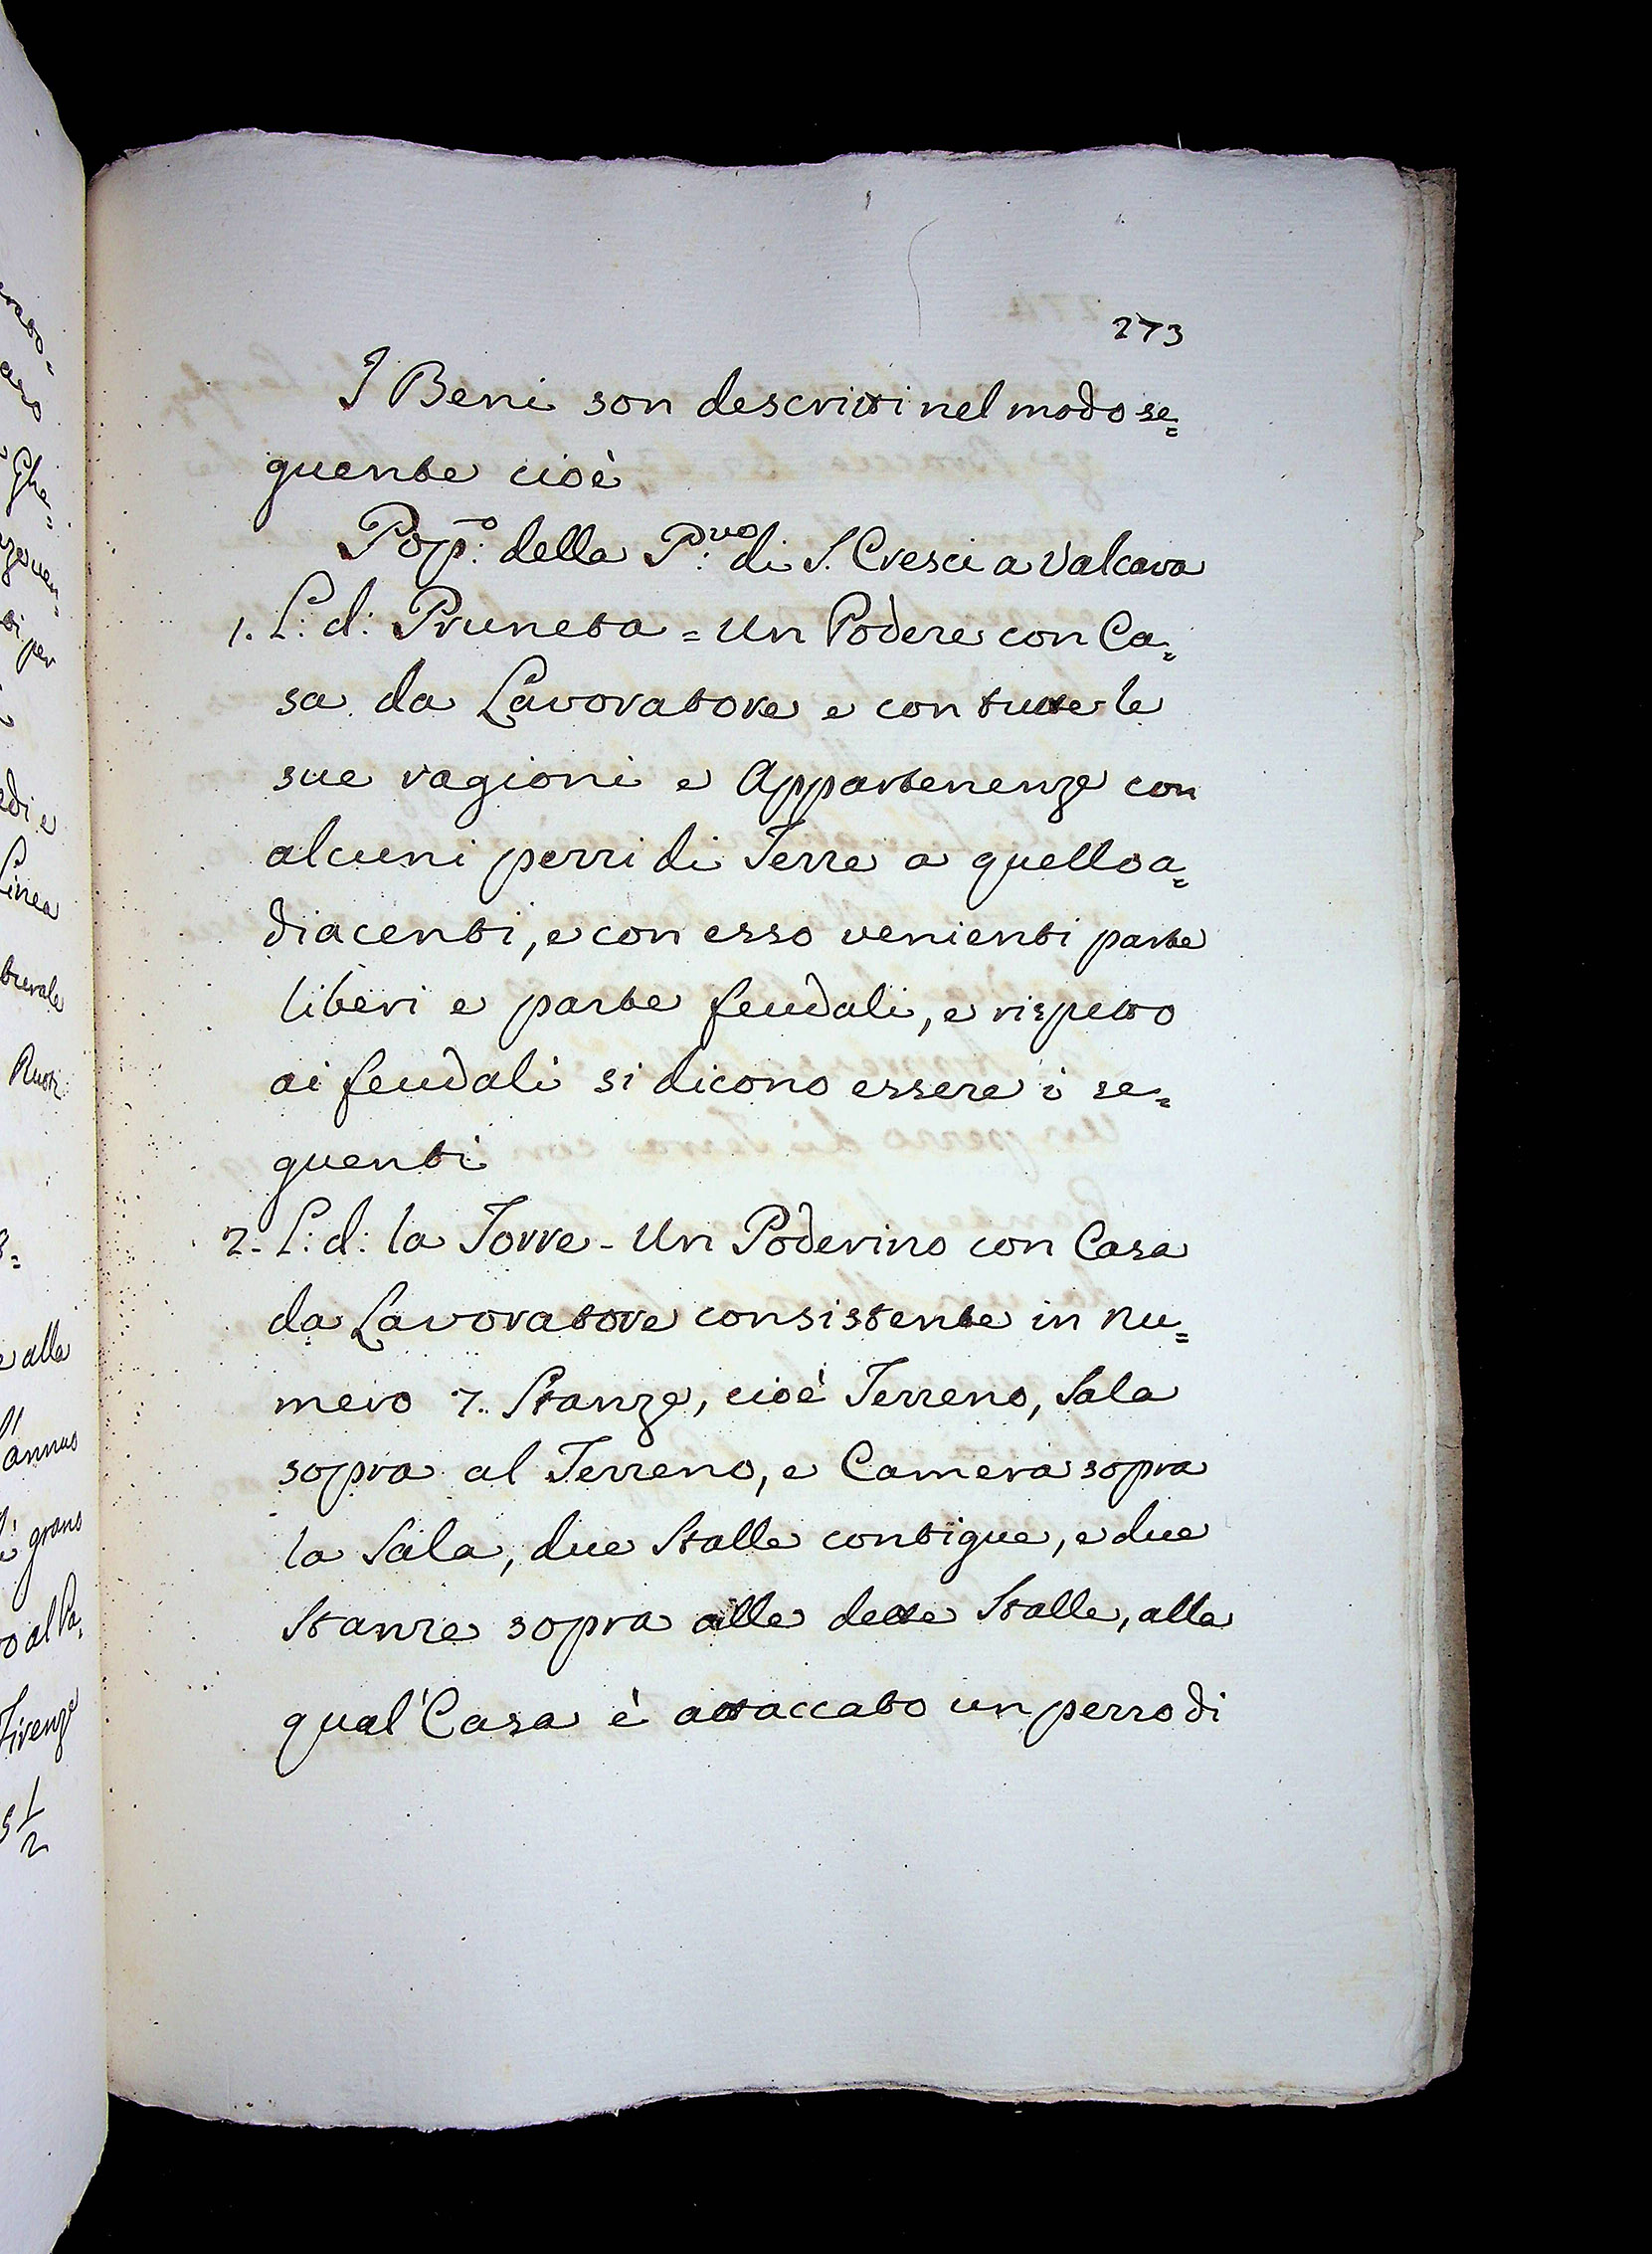 273
I Beni son descritti nel modo se=
guente cioè
Pop:o della P:ve di S. Cresci a Valcava
1. L: d: Pruneta = Un Podere con Ca=
sa da Lavoratore e con tutte le
sue ragioni e Appartenenze con
alcuni pezzi di Terre a quello a=
diacenti, e con esso venienti parte
liberi e parte feudali, e rispetto
ai feudali si dicono essere i se=
guenti
2. L: d: la Torre - Un Poderino con Casa
da Lavoratore consistente in nu=
mero 7. Stanze, cioè Terreno, Sala
sopra al Terreno, e Camera sopra
la Sala, due Stalle contigue, e due
Stanze sopra alle dette Stalle, alla
qual' Casa è attaccato un pezzo di
Ghe=
si per
edi e
Linea
Ruoti
e alla
annuo
grano
o al Pa=
Firenze
1/2